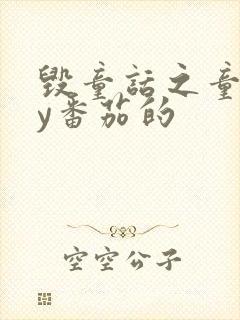 毁童话之童
y番茄的
空空公子